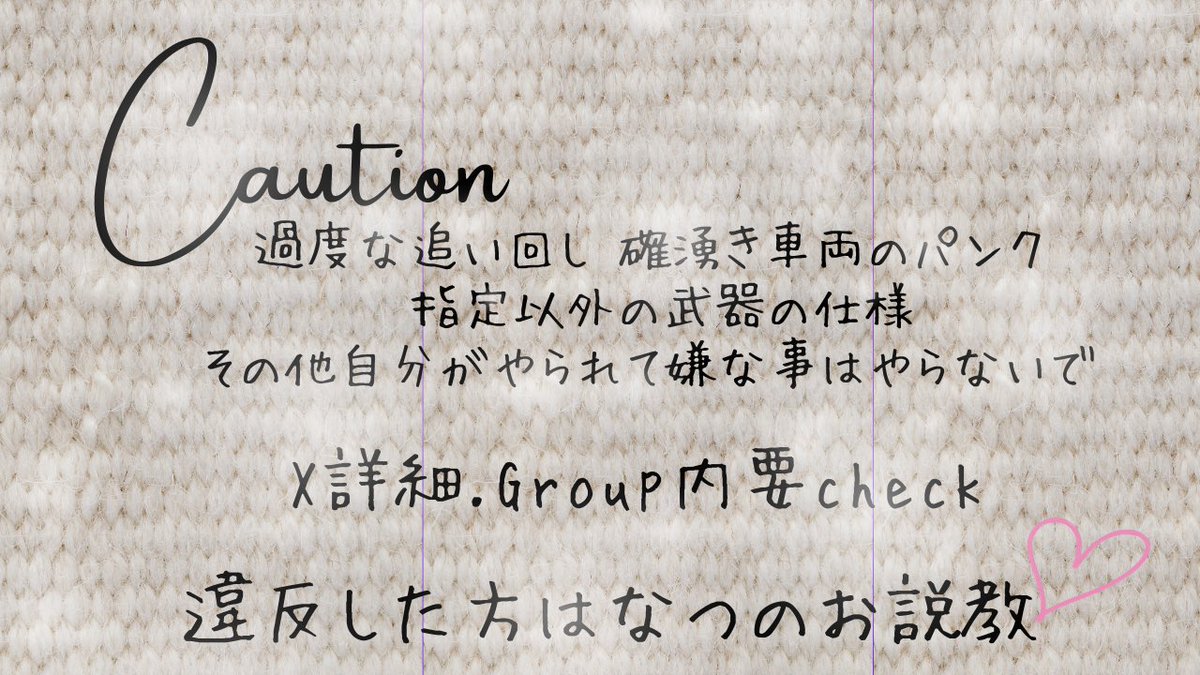 Caution
過度な追い回し 確湧き車両のパンク
指定以外の武器の仕様
その他自分がやられて嫌な事はやらないで
X詳細.Group内要check
違反した方はなつのお説教